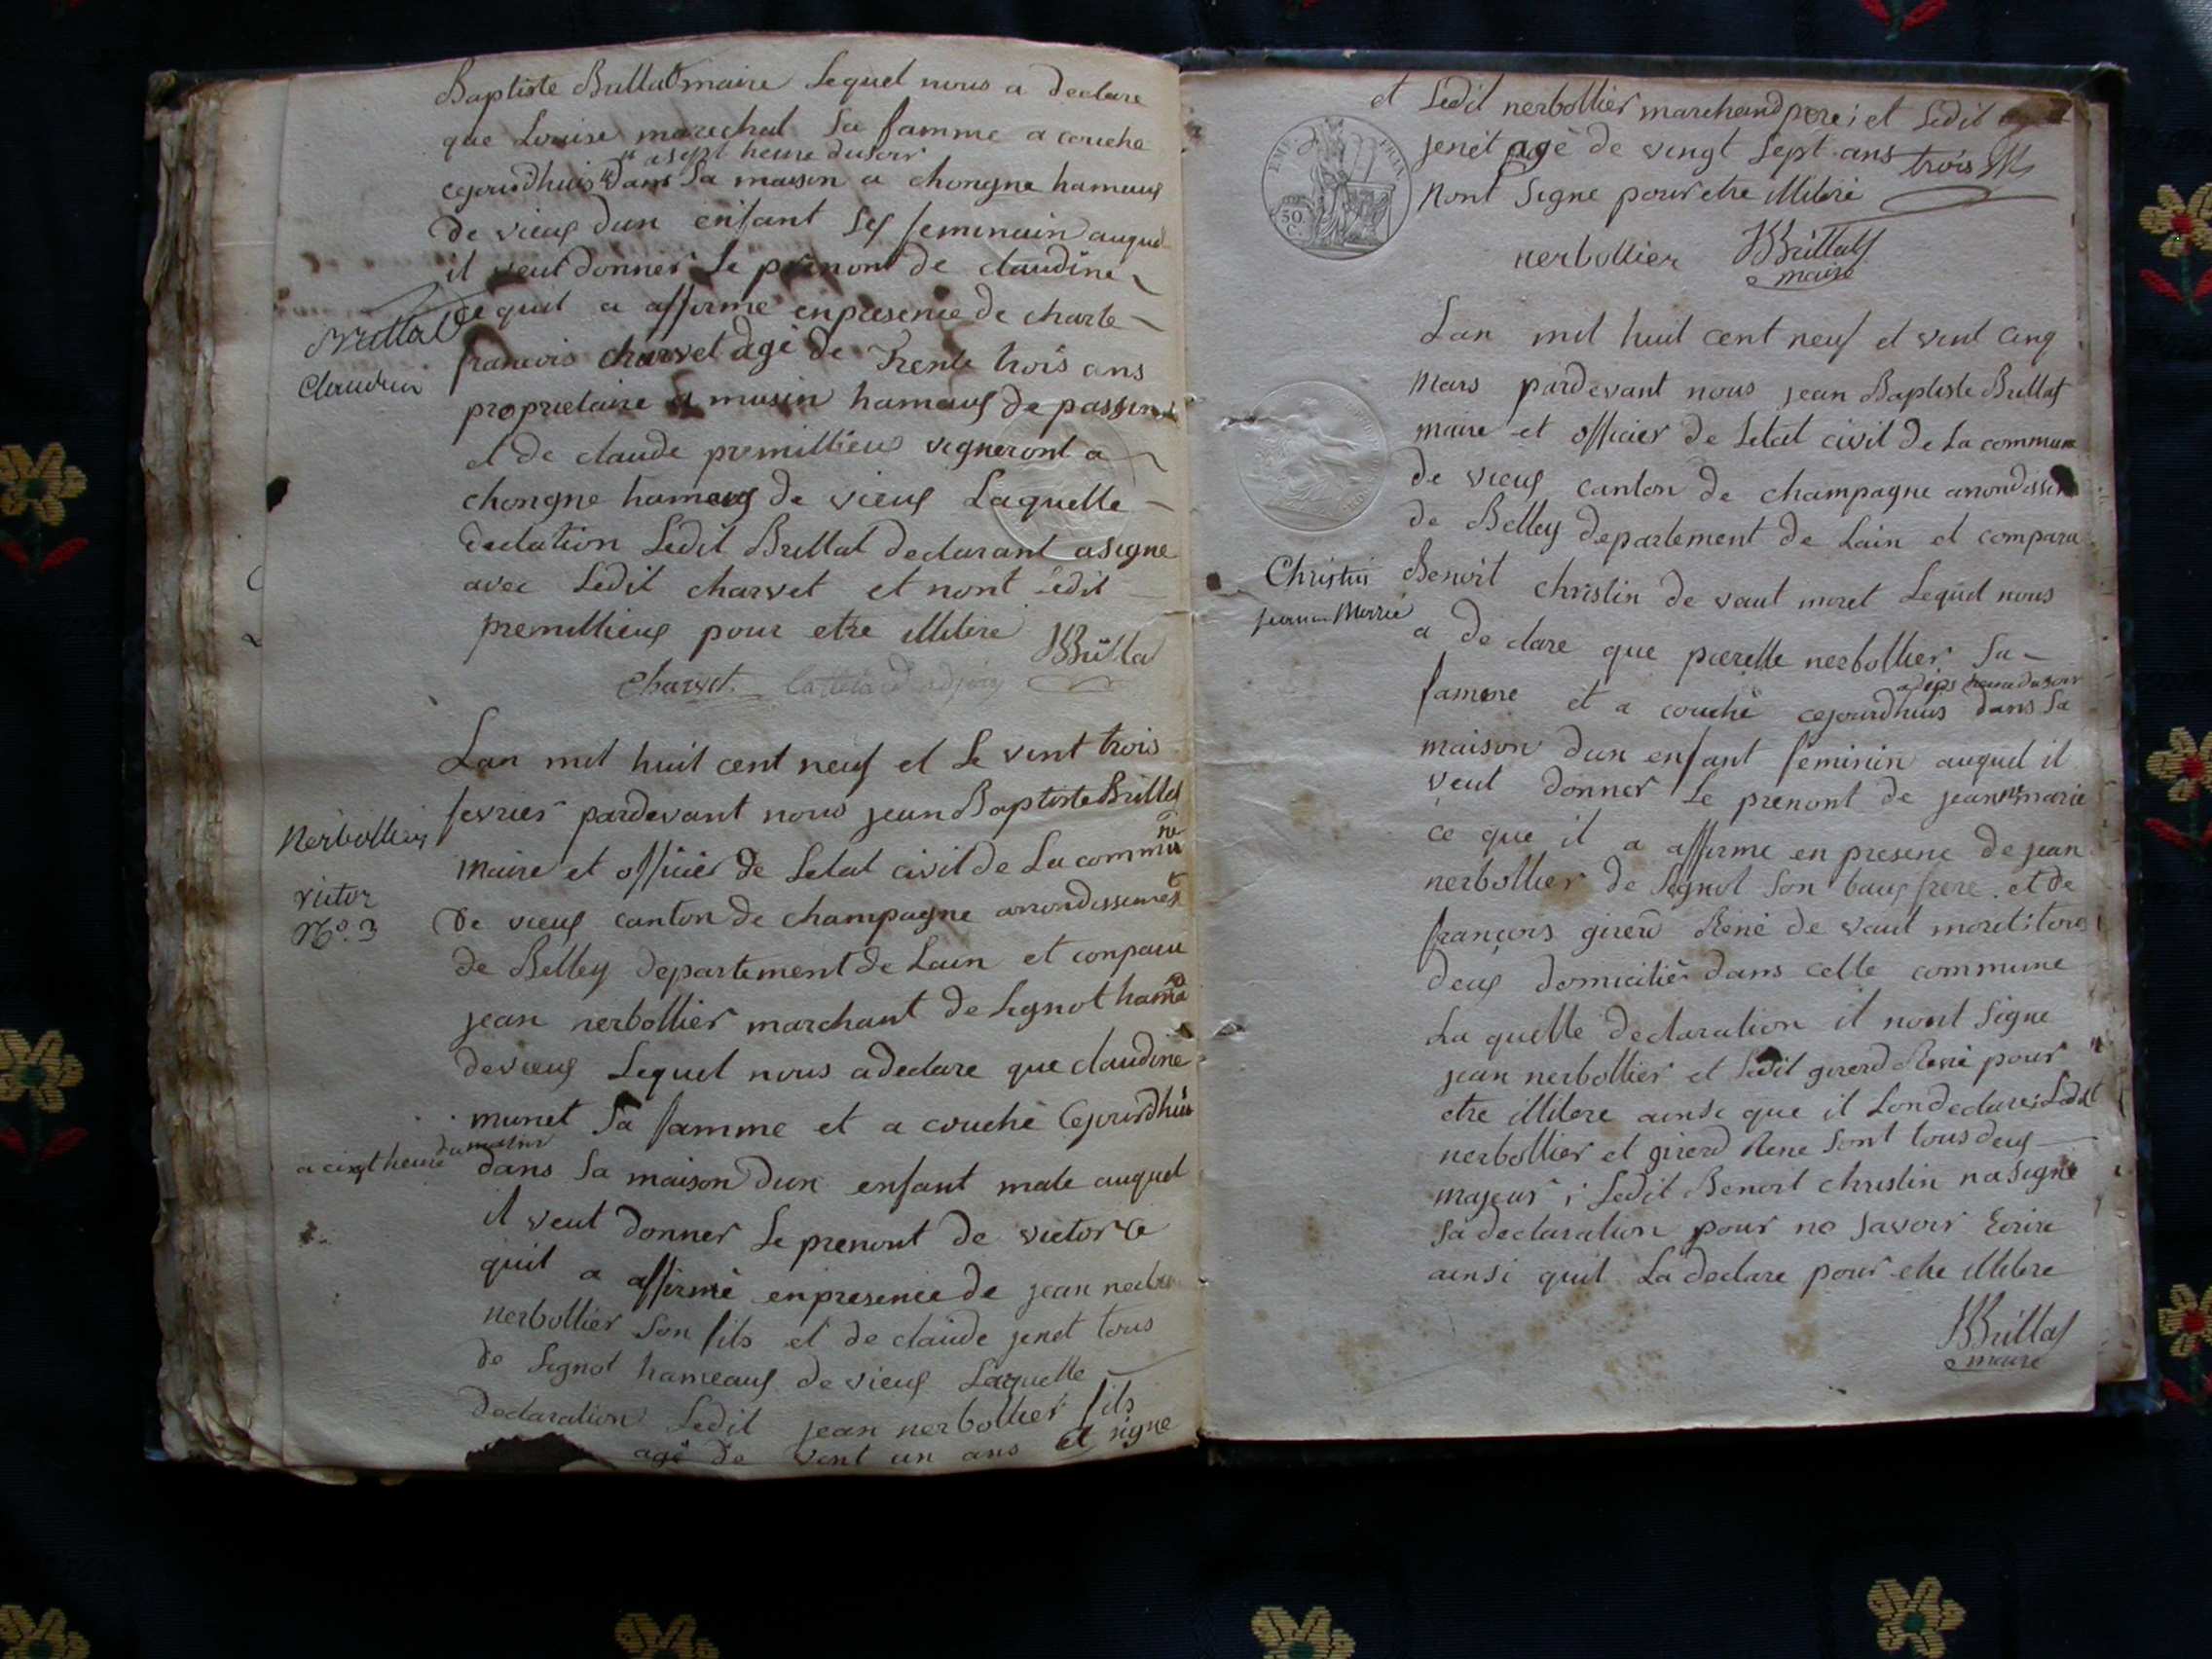 Baptiste Brillat maire Lequel nous a declare
que Louise marechal Sa famme a couche
a sept heure du soir
cejourdhuis dans Sa maison a chongne hameaux
de vieux dun enfant Sex feminain auquel
il veut donner Le prenont de claudine
ce quil a affirme en presence de charle
Brillat
Claudine
francois charvet agé de Trente trois ans
proprietaire a musin hameaux de passin
et de claude premillieux vigneront a
chongne hameaux de vieux Laquelle
declation Ledit Brillat declarant a signe
avec Ledit charvet et nont Ledit
premillieux pour etre illitére
JBBrillat
Charvet
Lan mil huit cent neuf et Le vint trois
fevrier pardevant nous jean Baptiste Brillat
Nerbollier
maire et officier de Letat civil de La commune
victor
N°. 3
de vieux canton de champagne arrondissement
de Belley departement de Lain et conparu
jean nerbollier marchant de Lignot hamea
de vieux Lequel nous a declare que claudine
munet Sa famme et a couché Cejourdhuis
a cinqt heure du matin
dans Sa maison dun enfant male auquel
il veut donner Le prenont de victor Ce
quil a affirmé en presence de jean
nerbollier Son fils et de claude jenet tous
de Lignot hameaux de vieux Laquelle
declaration Ledit jean nerbollier fils
agé de vent un ans et signe
et Ledit nerbollier marchand pere; et Ledit
jenet agé de vingt Sept ans trois
Nont Signe pour etre illitéré
EMP. FRAN.
50
C.
nerbollier JBBrillat
maire
Lan mil huit cent neuf et vent Cinq
Mars pardevant nous jean Baptiste Brillat
maire et officier de Letat civil de La commune
de vieux canton de champagne arrondissem
de Belley departement de Lain et comparu
Christin
Jeanne Marie
Benoit christin de vaut moret Lequel nous
a declare que pierette nerbollier Sa
a dix heure du soir
famme et a couché cejourdhuis dans Sa
maison dun enfant feminin auquel il
veut donner Le prenont de jeanne marie
ce que il a affirme en presenc de jean
nerbollier de Lignot Son baux frere et de
françois girerd René de vaut moret: tous
deux domicilié dans cette commune
La quelle declaration il nont Signe
jean nerbollier et Ledit girerd René pour
etre illitere ainsi que il Londeclare; Ledit
nerbollier et girerd Rene Sont tous deux
majeur; Ledit Benoit christin na Signé
Sa declaration pour ne Savoir Ecrire
ainsi quil La declare pour etre illitere
JBBrillat
maire